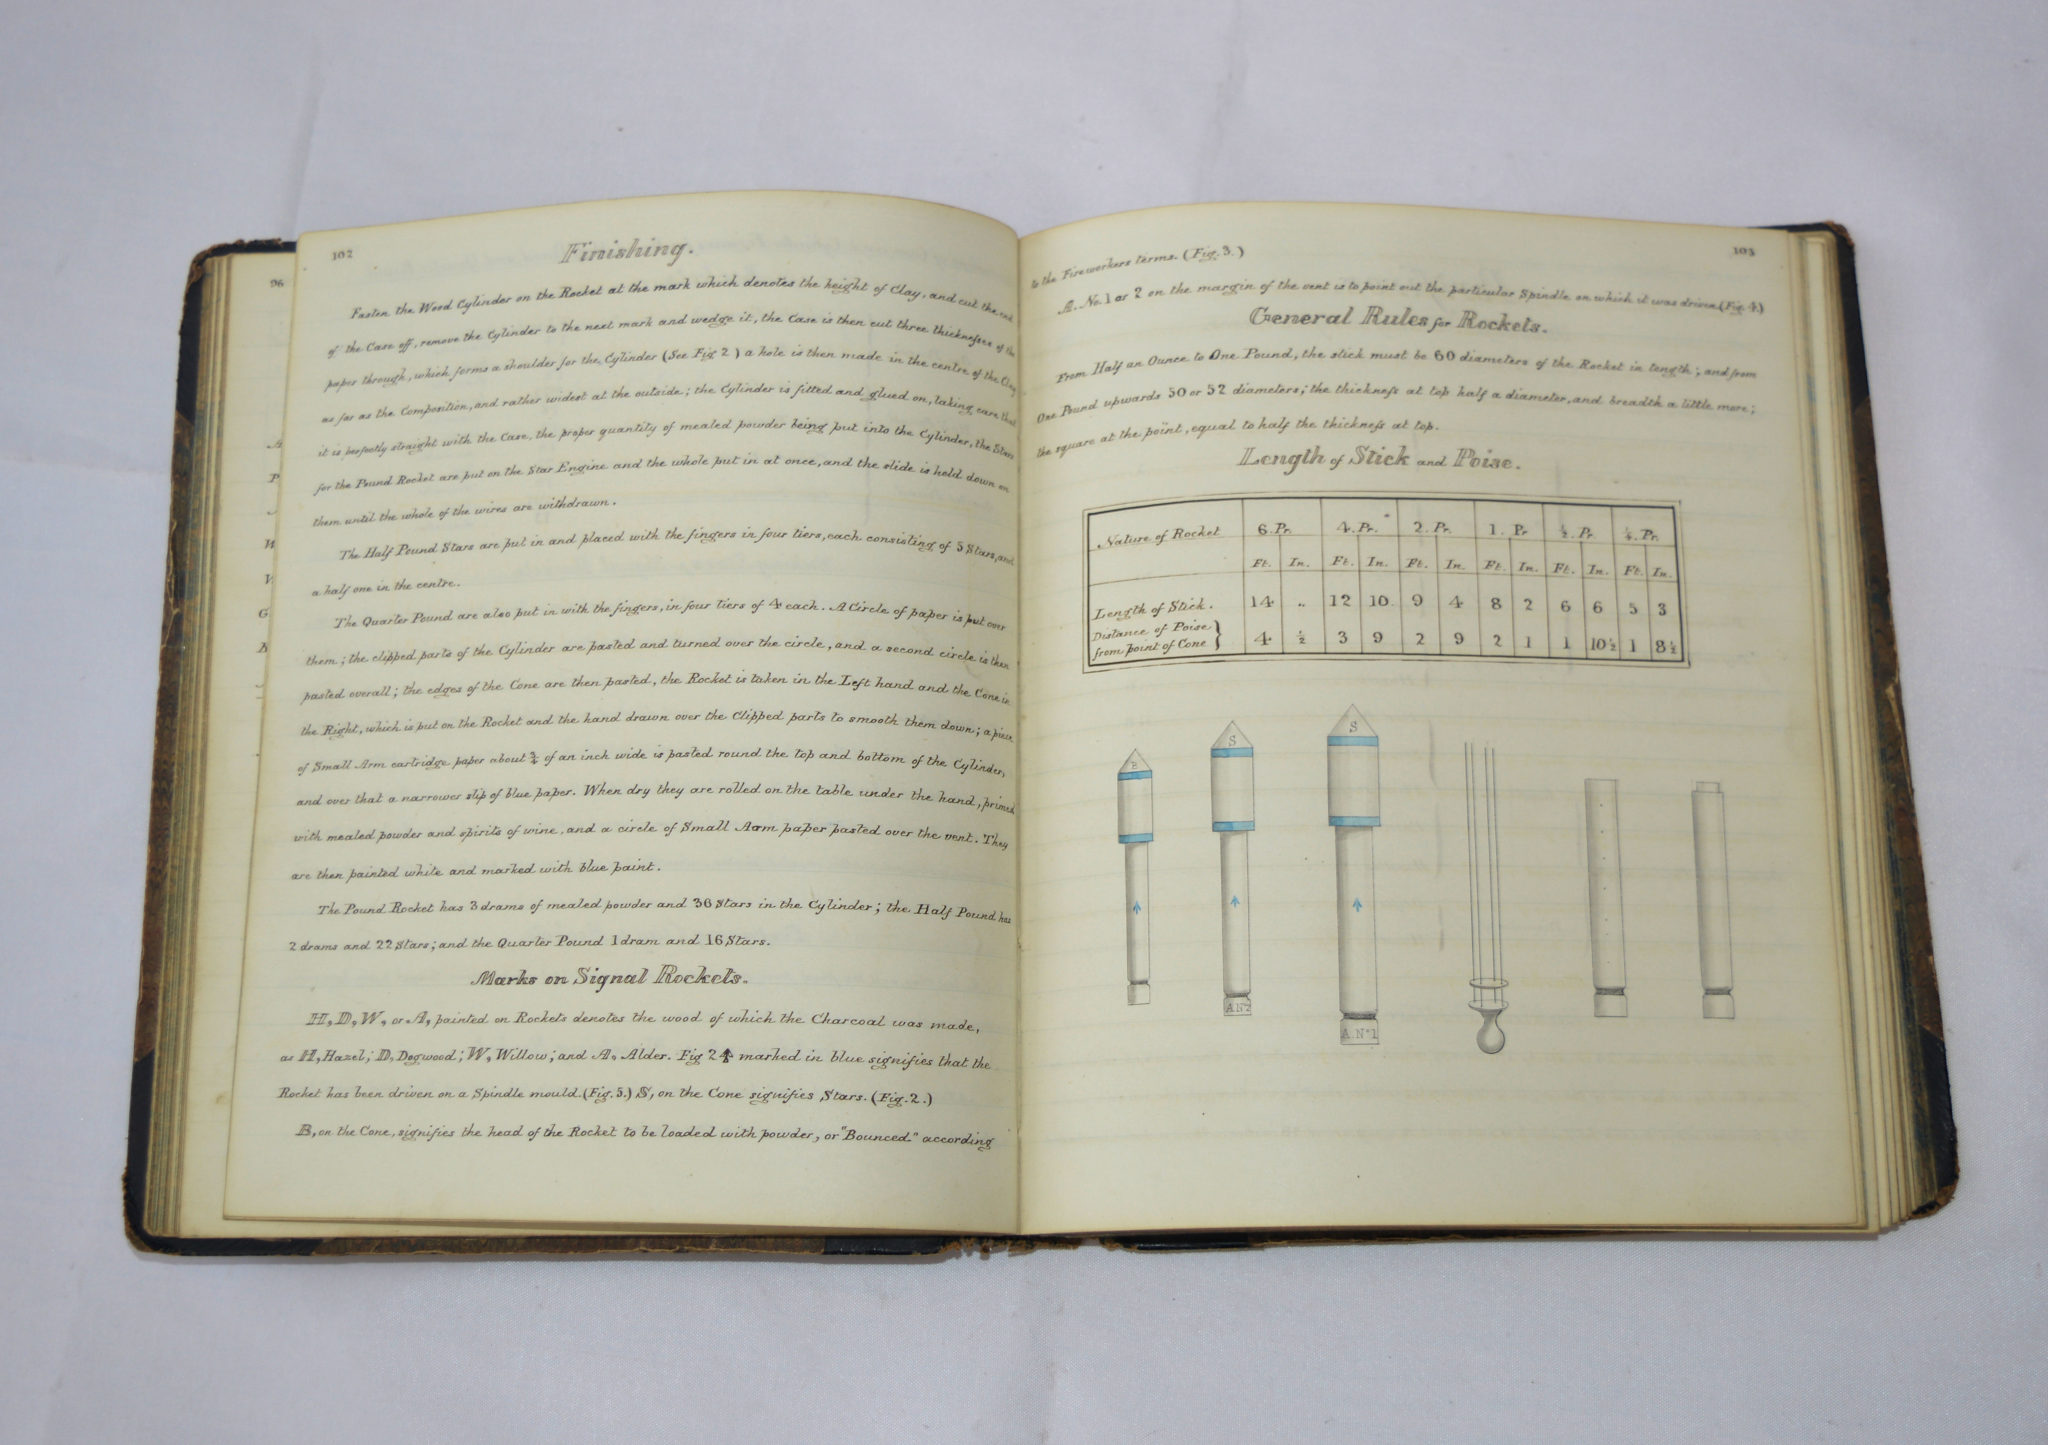 96
A
P
W
V
G
102
Finishing.
Fasten the Wood Cylinder on the Rocket at the mark which denotes the height of Clay, and cut the end
of the Case off, remove the Cylinder to the next mark and wedge it, the Case is then cut three thicknesses of the
paper through, which forms a shoulder for the Cylinder (See Fig 2) a hole is then made in the centre of the Clay
as far as the Composition, and rather widest at the outside; the Cylinder is fitted and glued on, taking care that
it is perfectly straight with the Case, the proper quantity of mealed powder being put into the Cylinder, the Stars
for the Pound Rocket are put on the Star Engine and the whole put in at once, and the slide is held down on
them until the whole of the wires are withdrawn.
The Half Pound Stars are put in and placed with the fingers in four tiers, each consisting of 5 Stars, and
a half one in the centre.
The Quarter Pound are also put in with the fingers, in four tiers of 4 each. A Circle of paper is put over
them; the clipped parts of the Cylinder are pasted and turned over the circle, and a second circle is then
pasted overall; the edges of the Cone are then pasted, the Rocket is taken in the Left hand and the Cone in
the Right, which is put on the Rocket and the hand drawn over the Clipped parts to smooth them down; a piece
of Small Arm cartridge paper about ¾ of an inch wide is pasted round the top and bottom of the Cylinder,
and over that a narrower slip of blue paper. When dry they are rolled on the table under the hand, primed
with mealed powder and spirits of wine, and a circle of Small Arm paper pasted over the vent. They
are then painted white and marked with blue paint.
The Pound Rocket has 3 drams of mealed powder and 36 Stars in the Cylinder; the Half Pound has
2 drams and 22 Stars; and the Quarter Pound 1 dram and 16 Stars.
Marks on Signal Rockets.
H, D, W, or A, painted on Rockets denotes the wood of which the Charcoal was made,
as H, Hazel; D, Dogwood; W, Willow; and A, Alder. Fig 2 ↑ marked in blue signifies that the
Rocket has been driven on a Spindle mould. (Fig. 5.) S, on the Cone signifies Stars. (Fig. 2.)
B, on the Cone, signifies the head of the Rocket to be loaded with powder, or "Bounced" according
103
to the Fireworkers terms. (Fig. 3.)
A. No. 1 or 2 on the margin of the vent is to point out the particular Spindle on which it was driven (Fig. 4.)
General Rules for Rockets.
From Half an Ounce to One Pound, the stick must be 60 diameters of the Rocket in length; and from
One Pound upwards 50 or 52 diameters; the thickness at top half a diameter, and breadth a little more;
the square at the point, equal to half the thickness at top.
Length of Stick and Poise.
Nature of Rocket 6. Pr. 4. Pr. 2. Pr. 1. Pr ½. Pr. ¼. Pr.
Ft. In. Ft. In. Ft. In. Ft. In. Ft. In. Ft. In.
Length of Stick. 14 „ 12 10 9 4 8 2 6 6 5 3
Distance of Poise from point of Cone } 4 ½ 3 9 2 9 2 1 1 10½ 1 8½
B
S
S
A N°2
A. N° 1